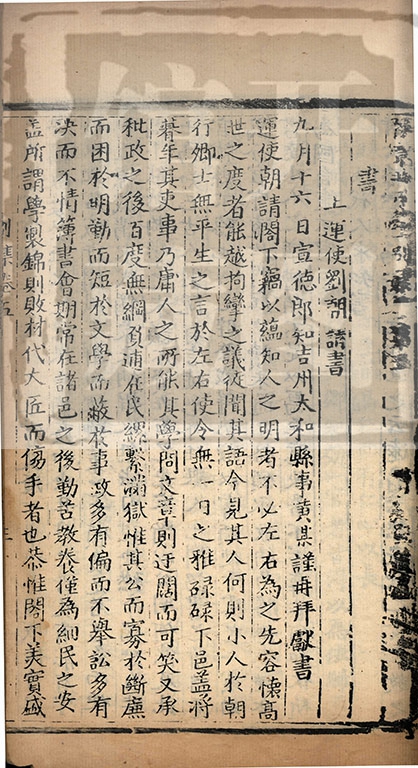 書
上運使劉朝請書
九月十六日宣德郎知吉州太和縣事黃某謹再拜獻書
運使朝請閤下竊以蘊知人之明者不必左右為之先容懷高
世之度者能越拘攣之議從聞其語令見其人何則小人於朝
行鄉士無平生之言於左右使令無一日之雅碌碌下邑蓋將
朞年其吏事乃庸人之所能其學問文章則迂闊而可笑又承
秕政之後百度無綱負逋在民縲繫滿獄惟其公而寡於斷廉
而困於明勤而短於文學而蔽故事政多有偏而不舉訟多有
決而不情簿書會期常在諸邑之後勤苦教養僅為細民之安
蓋所謂學製錦則敗材代大匠而傷手者也恭惟閤下美實盛